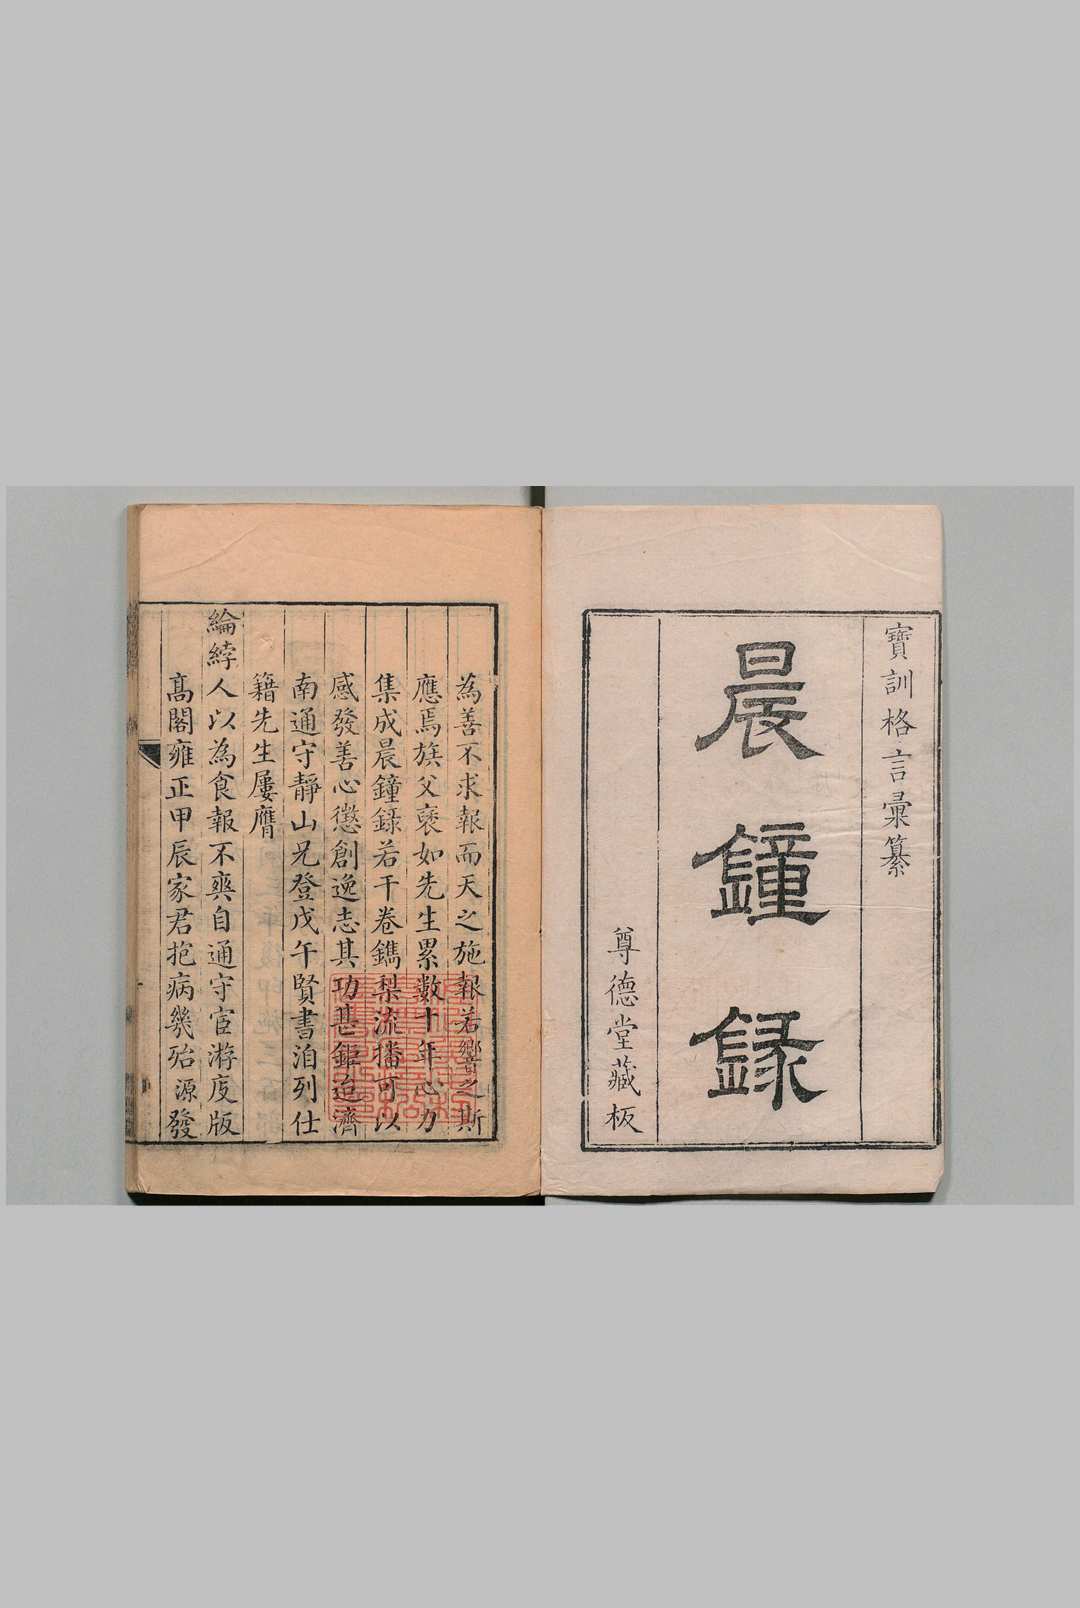 寶訓格言彙纂
晨鐘錄
尊德堂藏板
為善不求報而天之施報若響之斯
應焉族父褎如先生累數十年心力
集成晨鐘錄若干卷鐫梨流播可以
感發善心懲創逸志其功甚鉅迨濟
南通守靜山兄登戊午賢書洎列仕
籍先生屢膺
綸綍人以為食報不爽自通守宦游度版
高閣雍正甲辰家君抱病幾殆源發